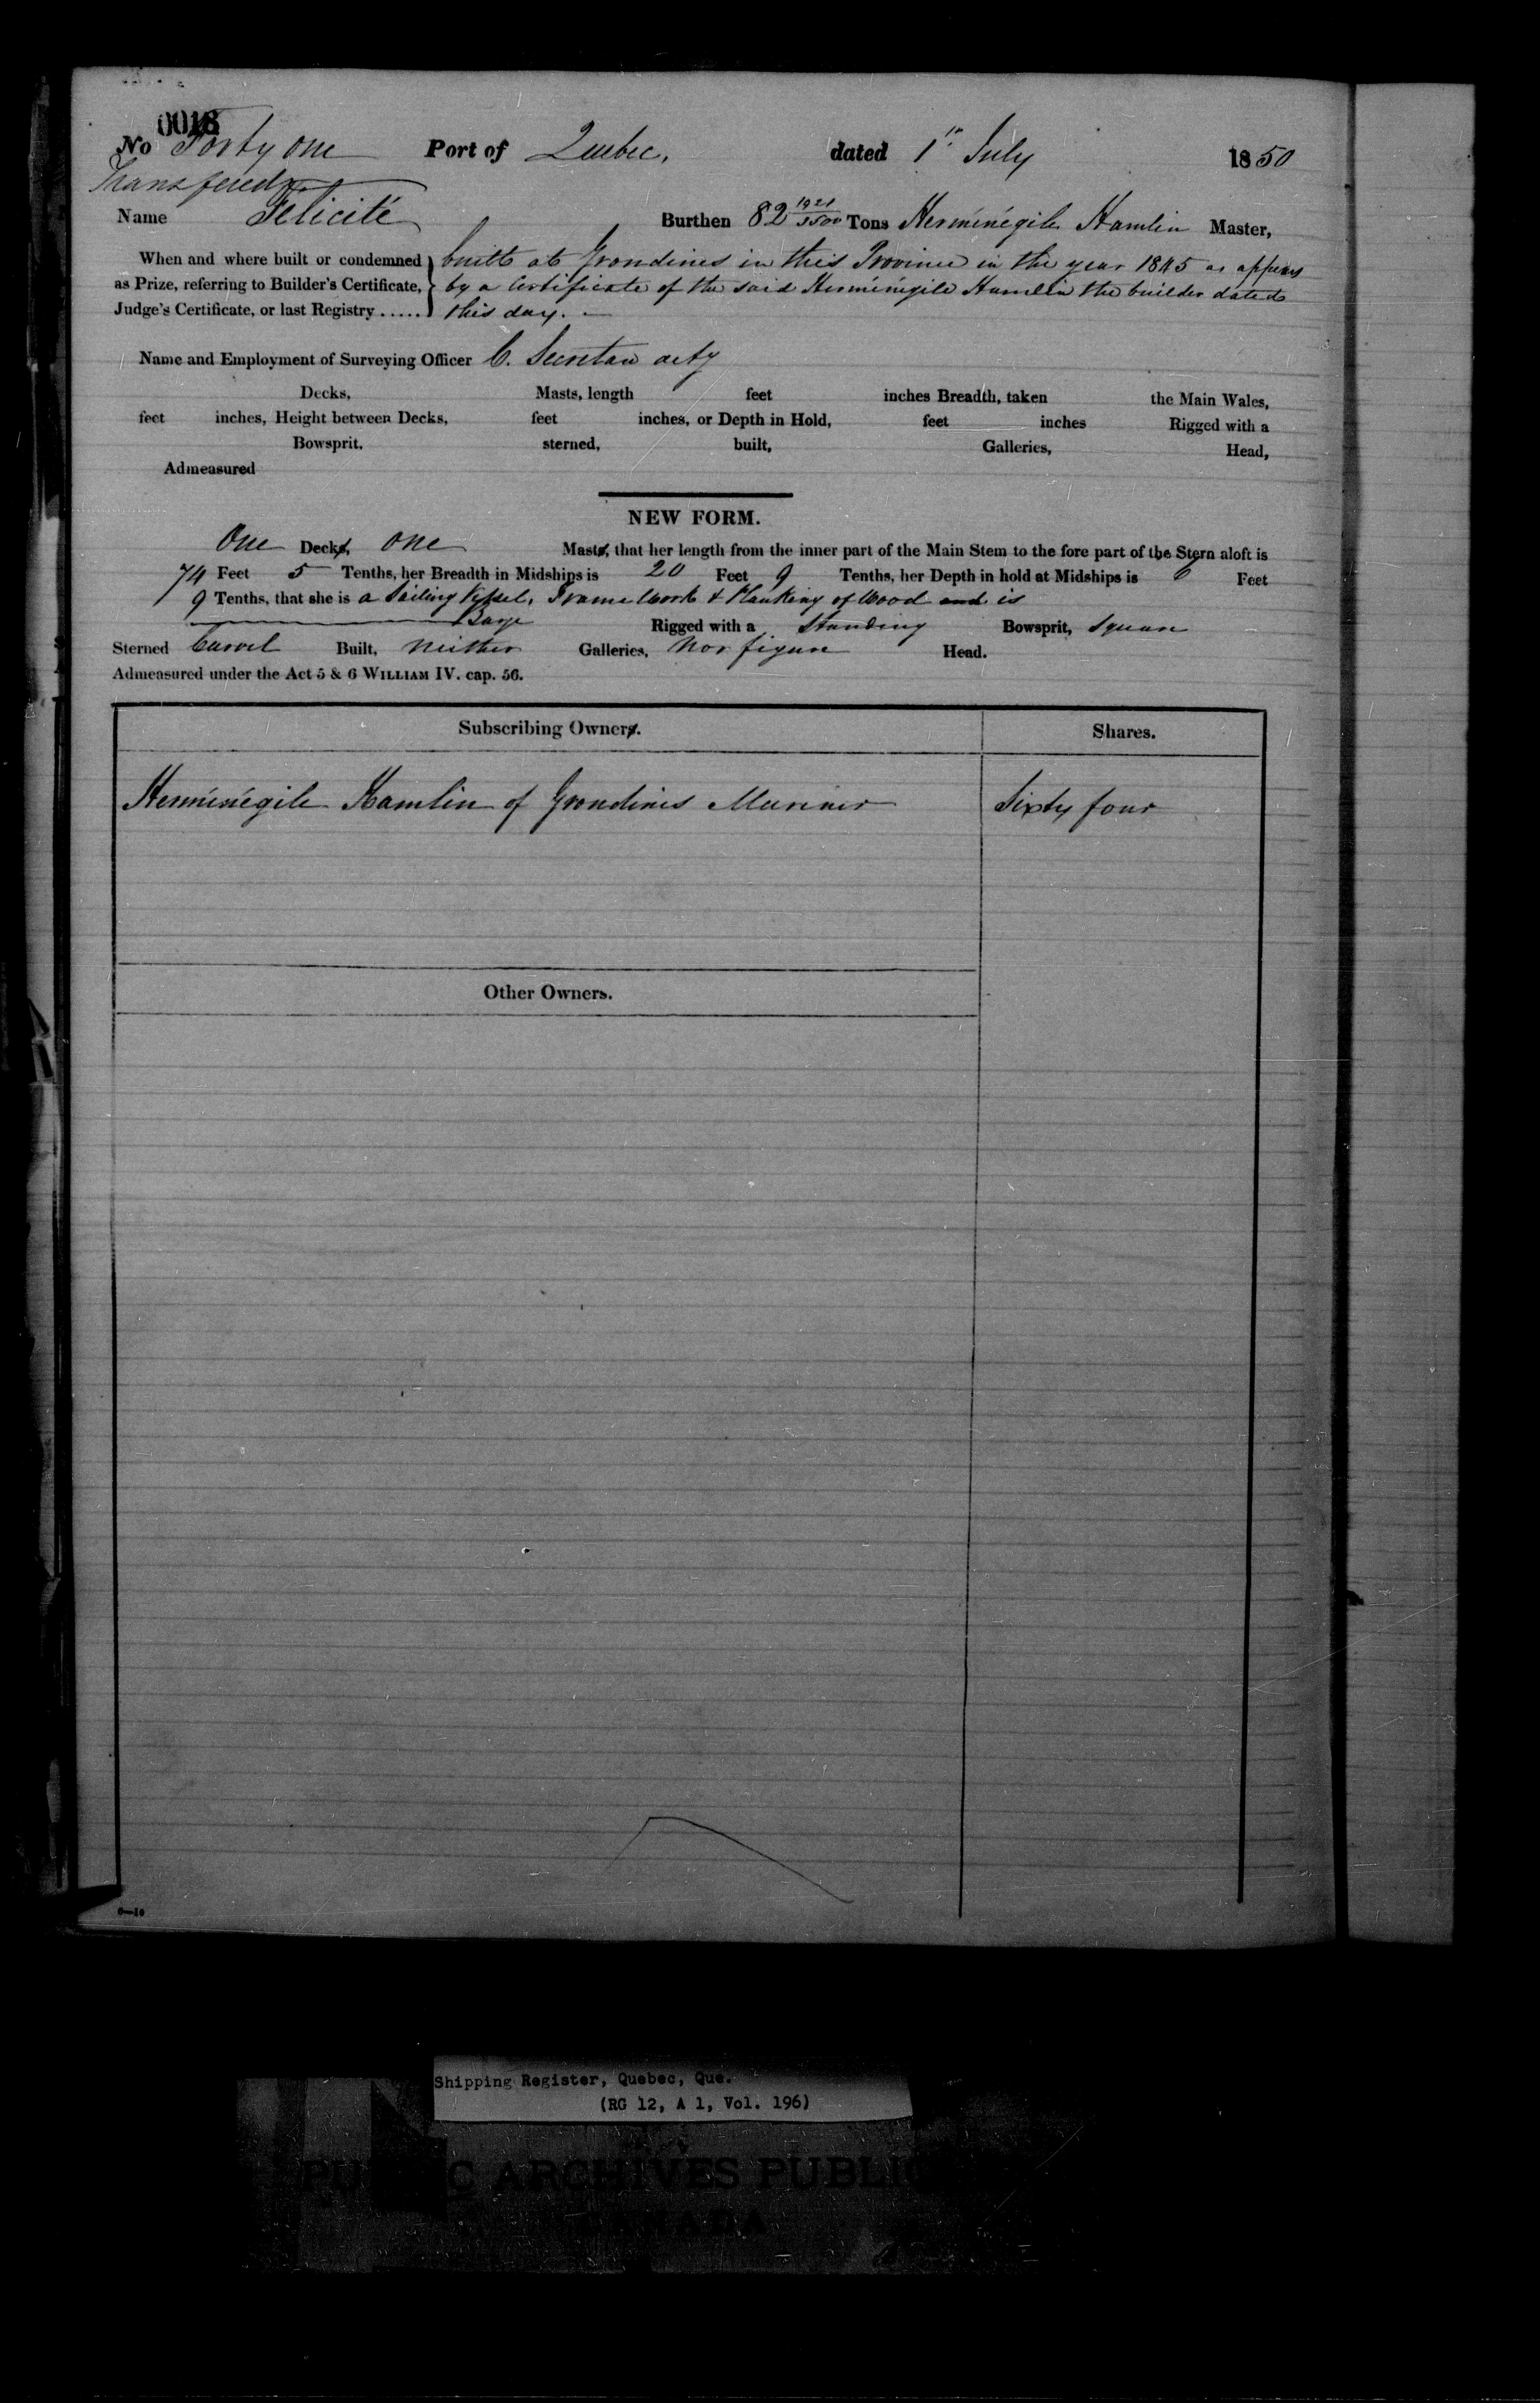 0018
No Forty one Port of Quebec, dated 1st July 1850
Transfered
Name Felicité Burthen 82 1921/3500 Tons Herménégile Hamlin Master,
When and where built or condemned built at Grondines in this Province in the year 1845 as appears
as Prize, referring to Builder's Certificate, by a Certificate of the said Herménégile Hamlin the builder dated
Judge's Certificate, or last Registry ..... this day. —
Name and Employment of Surveying Officer C. Secretan acty
Decks, Masts, length feet inches Breadth, taken the Main Wales,
feet inches, Height between Decks, feet inches, or Depth in Hold, feet inches Rigged with a
Bowsprit. sterned, built, Galleries, Head,
Admeasured
NEW FORM.
One Deck, one Mast, that her length from the inner part of the Main Stem to the fore part of the Stern aloft is
74 Feet 5 Tenths, her Breadth in Midships is 20 Feet 9 Tenths, her Depth in hold at Midships is 6 Feet
9 Tenths, that she is a Sailing Vessel, Frame Work & Planking of Wood and is
Barge Rigged with a Standing Bowsprit, Square
Sterned Carvel Built, Neither Galleries, Nor figure Head.
Admeasured under the Act 5 & 6 WILLIAM IV. cap. 56.
Subscribing Owner. Shares.
Herménégile Hamlin of Grondines Mariner Sixty four
Other Owners.
6—10
Shipping Register, Quebec, Que.
(RG 12, A 1, Vol. 196)
ARCHIVES PUBLI